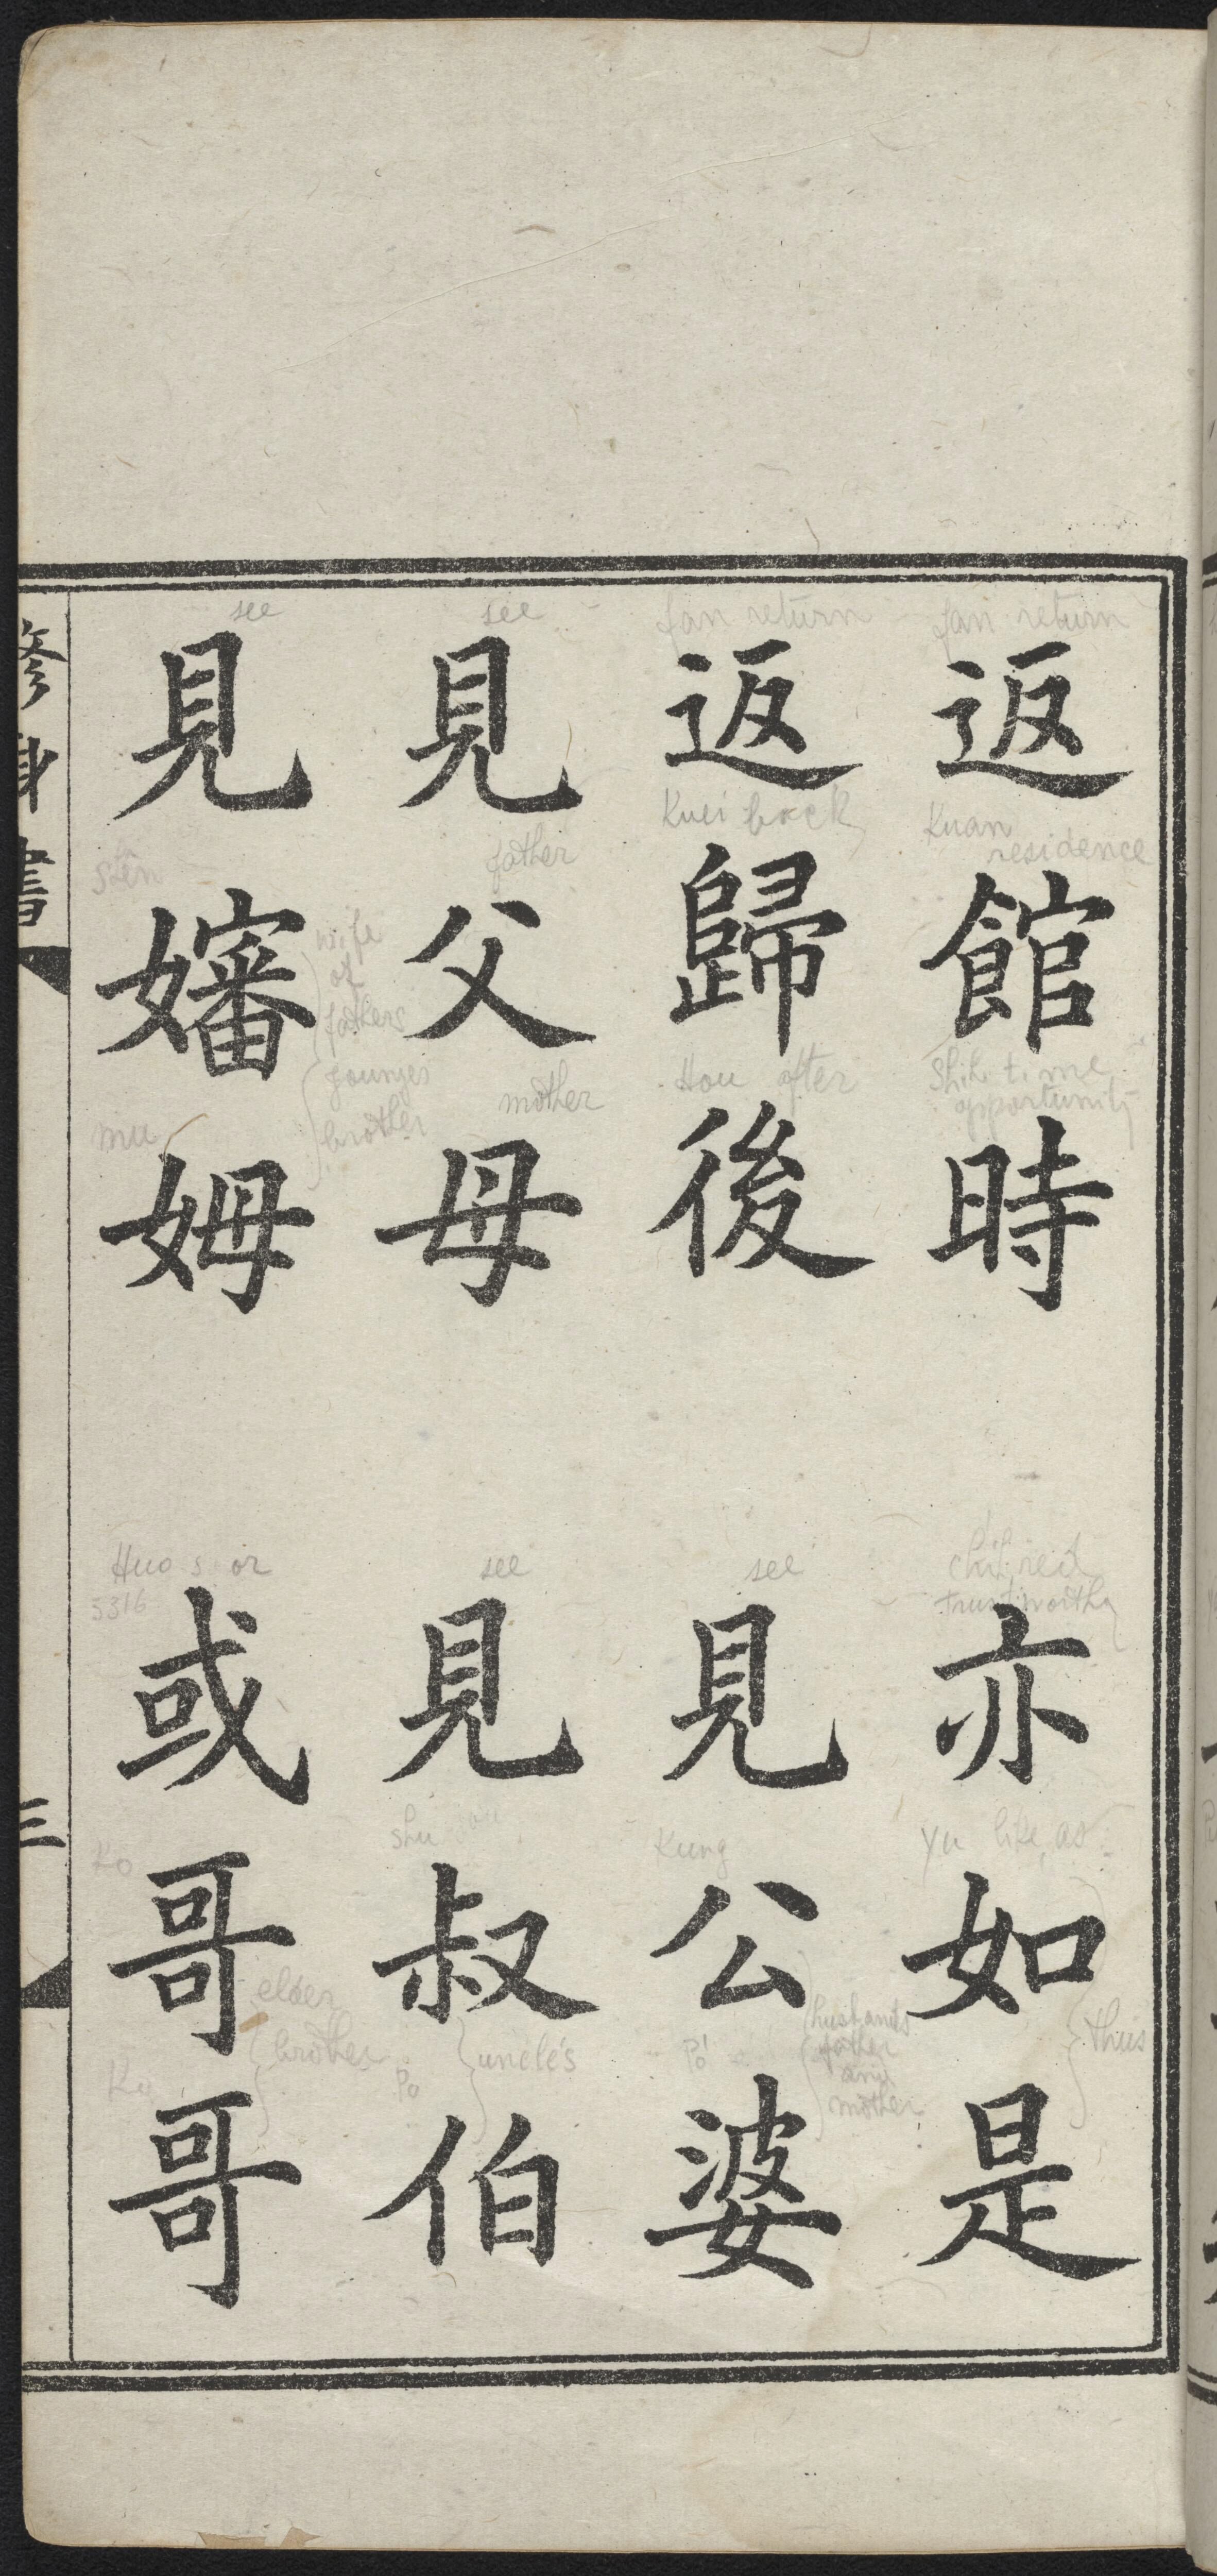 返館時 亦如是
返歸後 見公婆
見父母 見叔伯
見嬸姆 或哥哥
修身書
三
fan return
Kuan residence
Shih time
opportunity
trustworthy
Yu like, as
thus
fan return
Kuei back
Hou after
see
Kung
P'o
husband's
father
and
mother
see
father
mother
see
shu
Po
uncle's
see
Shen
mu
wife
of
fathers
younger
brother
Huo s or
5316
Ko
Ko
elder
brother